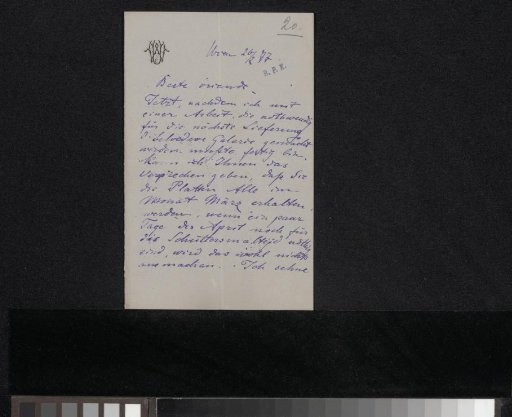 20.
Wien 26/2 87
R.P.K.
Beste vriend.
Jetzt, nachdem ich mit
einer Arbeit, die nothwendig
für die nächste Lieferung
Belvedere Galerie gemacht
werden musste fertig bin,
kann ich Ihnen das
Versprechen geben, daß Sie
die Platten Alle im
Monat März erhalten
werden, wenn ein paar
Tage des April noch für
die Schuttersmaltijd nöthig
sind, wird das wohl nichts
ausmachen. Ich